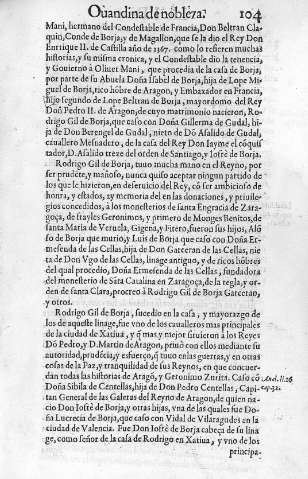 Ouandina de nobleza. 104
Mani, hermano del Condestable de Francia, Don Beltran Cla-
quin, Conde de Borja, y de Magallon, que se la dio el Rey Don
Enrrique II. de Castilla año de 1367. como lo refieren muchas
historias, y su misma cronica, y el Condestable dio la tenencia,
y Gouierno à Oliuet Mani, que procedia de la casa de Borja,
por parte de su Abuela Doña Isabel de Borja, hija de Lope Mi-
guel de Borja, rico hõbre de Aragon, y Embaxador en Francia,
hijo segundo de Lope Beltran de Borja, mayordomo del Rey
Dõ Pedro II. de Aragon, de cuyo matrimonio nacieron, Ro-
drigo Gil de Borja, que caso con Doña Guillerma de Gudal, hi-
ja de Don Berengel de Gudal, nieto de Dõ Asalido de Gudal,
cauallero Mesnadero, de la casa del Rey Don Iayme el cõquis-
tador, D. Asalido treze del orden de Santiago, y Iofrè de Borja.
Rodrigo Gil de Borja, tuuo mucha mano en el Reyno, por
ser prudẽte, y mañoso, nunca quiso aceptar ningun partido de
los que le hizieron, en deseruicio del Rey, cõ ser ambicioso de
honra, y estados, ay memoria del en las donaciones, y priuile-
gios concedidos, a los monesterios de santa Engracia de Zara-
goça, de frayles Geronimos, y primero de Monges Benitos, de
santa Maria de Veruela, Gigena, y Fitero, fueron sus hijos, Alõ
so de Borja que murio, y Luis de Borja que caso con Doña Er-
mesenda de las Cellas, hija de Don Garceran de las Cellas, nie
ta de Don Vgo de las Cellas, linage antiguo, y de ricos hõbres
del qual procedio, Doña Ermesenda de las Cellas, fundadora
del monesterio de Sãta Catalina en Zaragoça, de la regla, y or-
den de santa Clara, procreò à Rodrigo Gil de Borja Garcerao,
y otros.
Rodrigo Gil de Borja, sucedio en la casa, y mayorazgo de
los de aqueste linage, fue vno de los caualleros mas principales
de la ciudad de Xatiua, y q̃ mas y mejor siruieron à los Reyes
Dõ Pedro, y D. Martin de Aragon, priuò con ellos mediante su
autoridad, prudẽcia, y esfuerço, q̃ tuuo en las guerras, y en otras
cosas de la Paz, y tranquilidad de sus Reynos, en que concuer-
dan todas las historias de Aragõ, y Geronimo Zurita. Caso cõ
Doña Sibila de Centellas, hija de Don Pedro Centellas, Capi-
tan General de las Galeras del Reyno de Aragon, de quien na
cio Don Iofrè de Borja, y otras hijas, vna de las quales fue Do-
ña Lucrecia de Borja, que caso con Vidal de Vilaragudes en la
ciudad de Valencia. Fue Don Iofrè de Borja cabeça de su lina
ge, como señor de la casa de Rodrigo en Xatiua, y vno de los
principa-